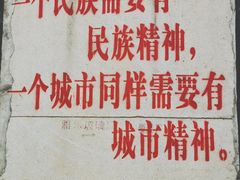 一个民族需要有
民族精神，
一个城市同样需要有
城市精神。